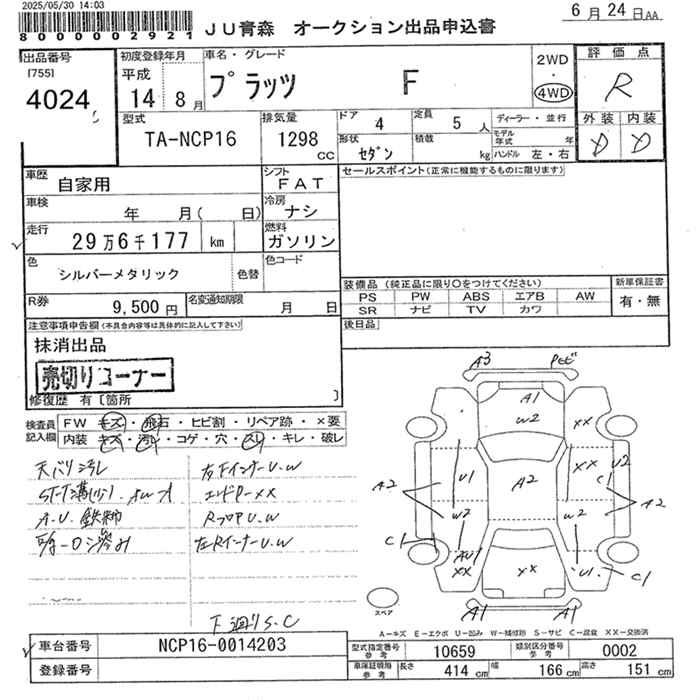 2025/05/30 14:03
8000002921
JU青森 オークション出品申込書
6月24日AA
出品番号
[755]
4024
初度登録年月
平成
14 8月
車名・グレード
プラッツ F
2WD
・
4WD
評価点
R
型式
TA-NCP16
排気量
1298
cc
ドア 4
定員 5人
形状
セダン
積載 kg
ディーラー・並行
モデル年式 年
ハンドル 左・右
外装 内装
D D
車歴
自家用
シフト
FAT
セールスポイント(正常に機能するものに限ります)
車検
年 月( 日)
冷房
ナシ
走行
29万6千177 km
燃料
ガソリン
色
シルバーメタリック
色替
色コード
装備品(純正品に限り○をつけてください)
新車保証書
PS PW ABS エアB AW
SR ナビ TV カワ
有・無
R券
9,500円
名変通知期限
月 日
後日品
注意事項申告欄(不具合内容等は具体的に記入して下さい)
抹消出品
売切りコーナー
修復歴 有〔箇所 〕
検査員
記入欄
FW キズ・飛石・ヒビ割・リペア跡・×要
内装 キズ・汚レ・コゲ・穴・スレ・キレ・破レ
天バリ汚レ
左FインナーU.W
エンドP-XX
A.U.鉄粉
RフロアU.W
左RインナーU.W
下廻りS.C
A3
A1
W2
XX
XX
U1
A2
A2
U2
C1
A2
W2
W2
C1
AU1
XX
XX
U1
C1
A1
A1
スペア
A-キズ E-エクボ U-凹み W-補修跡 S-サビ C-腐食 XX-交換済
車台番号
NCP16-0014203
型式指定番号
参考
10659
類別区分番号
参考
0002
登録番号
車庫証明用
参考
長さ 414 cm
幅 166 cm
高さ 151 cm